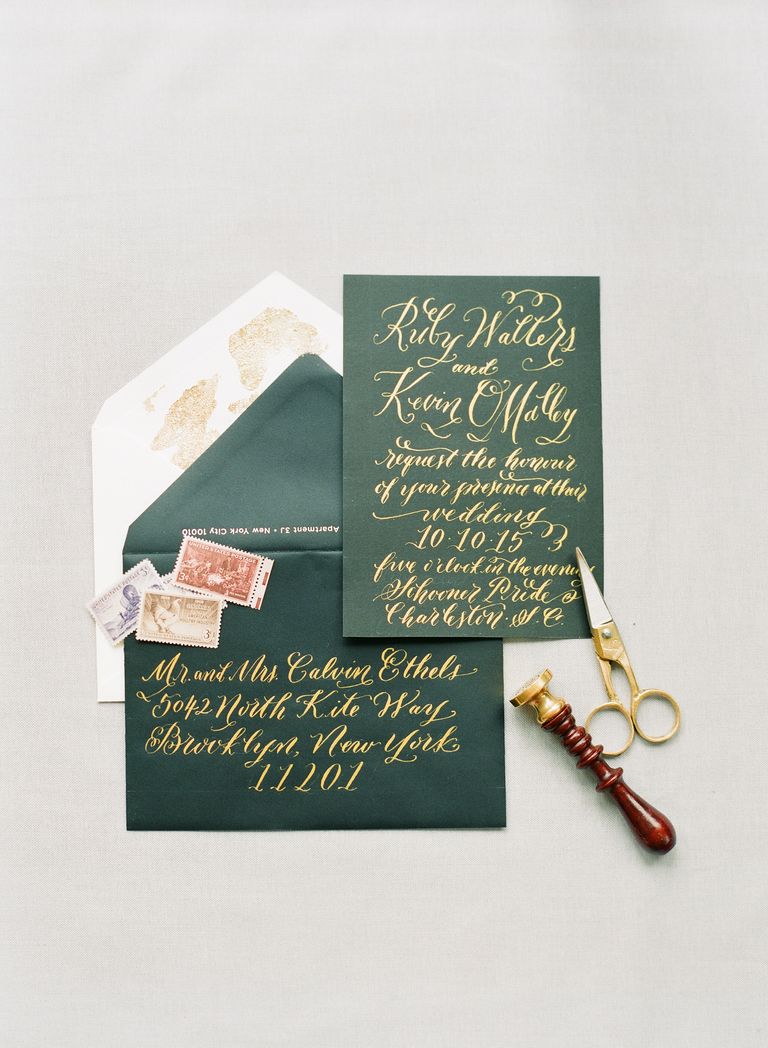 Ruby Walters
and
Kevin O'Malley
request the honour
of your presence at their
wedding
10·10·15
five o'clock in the evening
Schooner Pride
Charleston, S.C.
Apartment 3J • New York City 10010
UNITED STATES POSTAGE
3¢
AMERICAN
POULTRY INDUSTRY
3¢
Mr. and Mrs. Calvin Ethels
5042 North Kite Way
Brooklyn, New York
11201